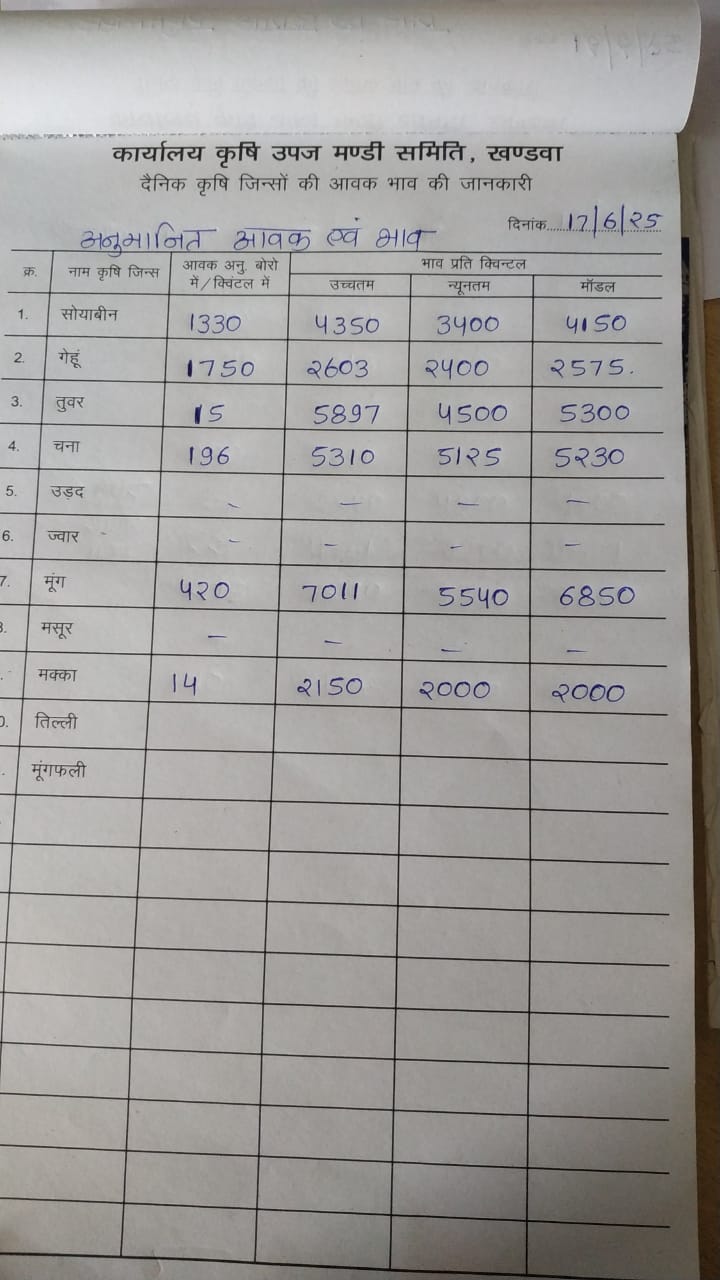 कार्यालय कृषि उपज मण्डी समिति, खण्डवा
दैनिक कृषि जिन्सों की आवक भाव की जानकारी
दिनांक 17/6/२5
अनुमानित आवक एवं भाव
क्र. नाम कृषि जिन्स आवक अनु. बोरो में/क्विंटल में भाव प्रति क्विन्टल
उच्चतम न्यूनतम मॉडल
1. सोयाबीन 1330 ५350 3५00 ५150
2. गेहूं 1750 २603 २५00 २575.
3. तुवर 15 5897 ५500 5300
4. चना 196 5310 51२5 5२30
5. उड़द - - - -
6. ज्वार - - - -
7. मूंग ५२0 7011 55५0 6850
मसूर - - - -
मक्का 14 २150 २000 २000
तिल्ली
मूंगफली